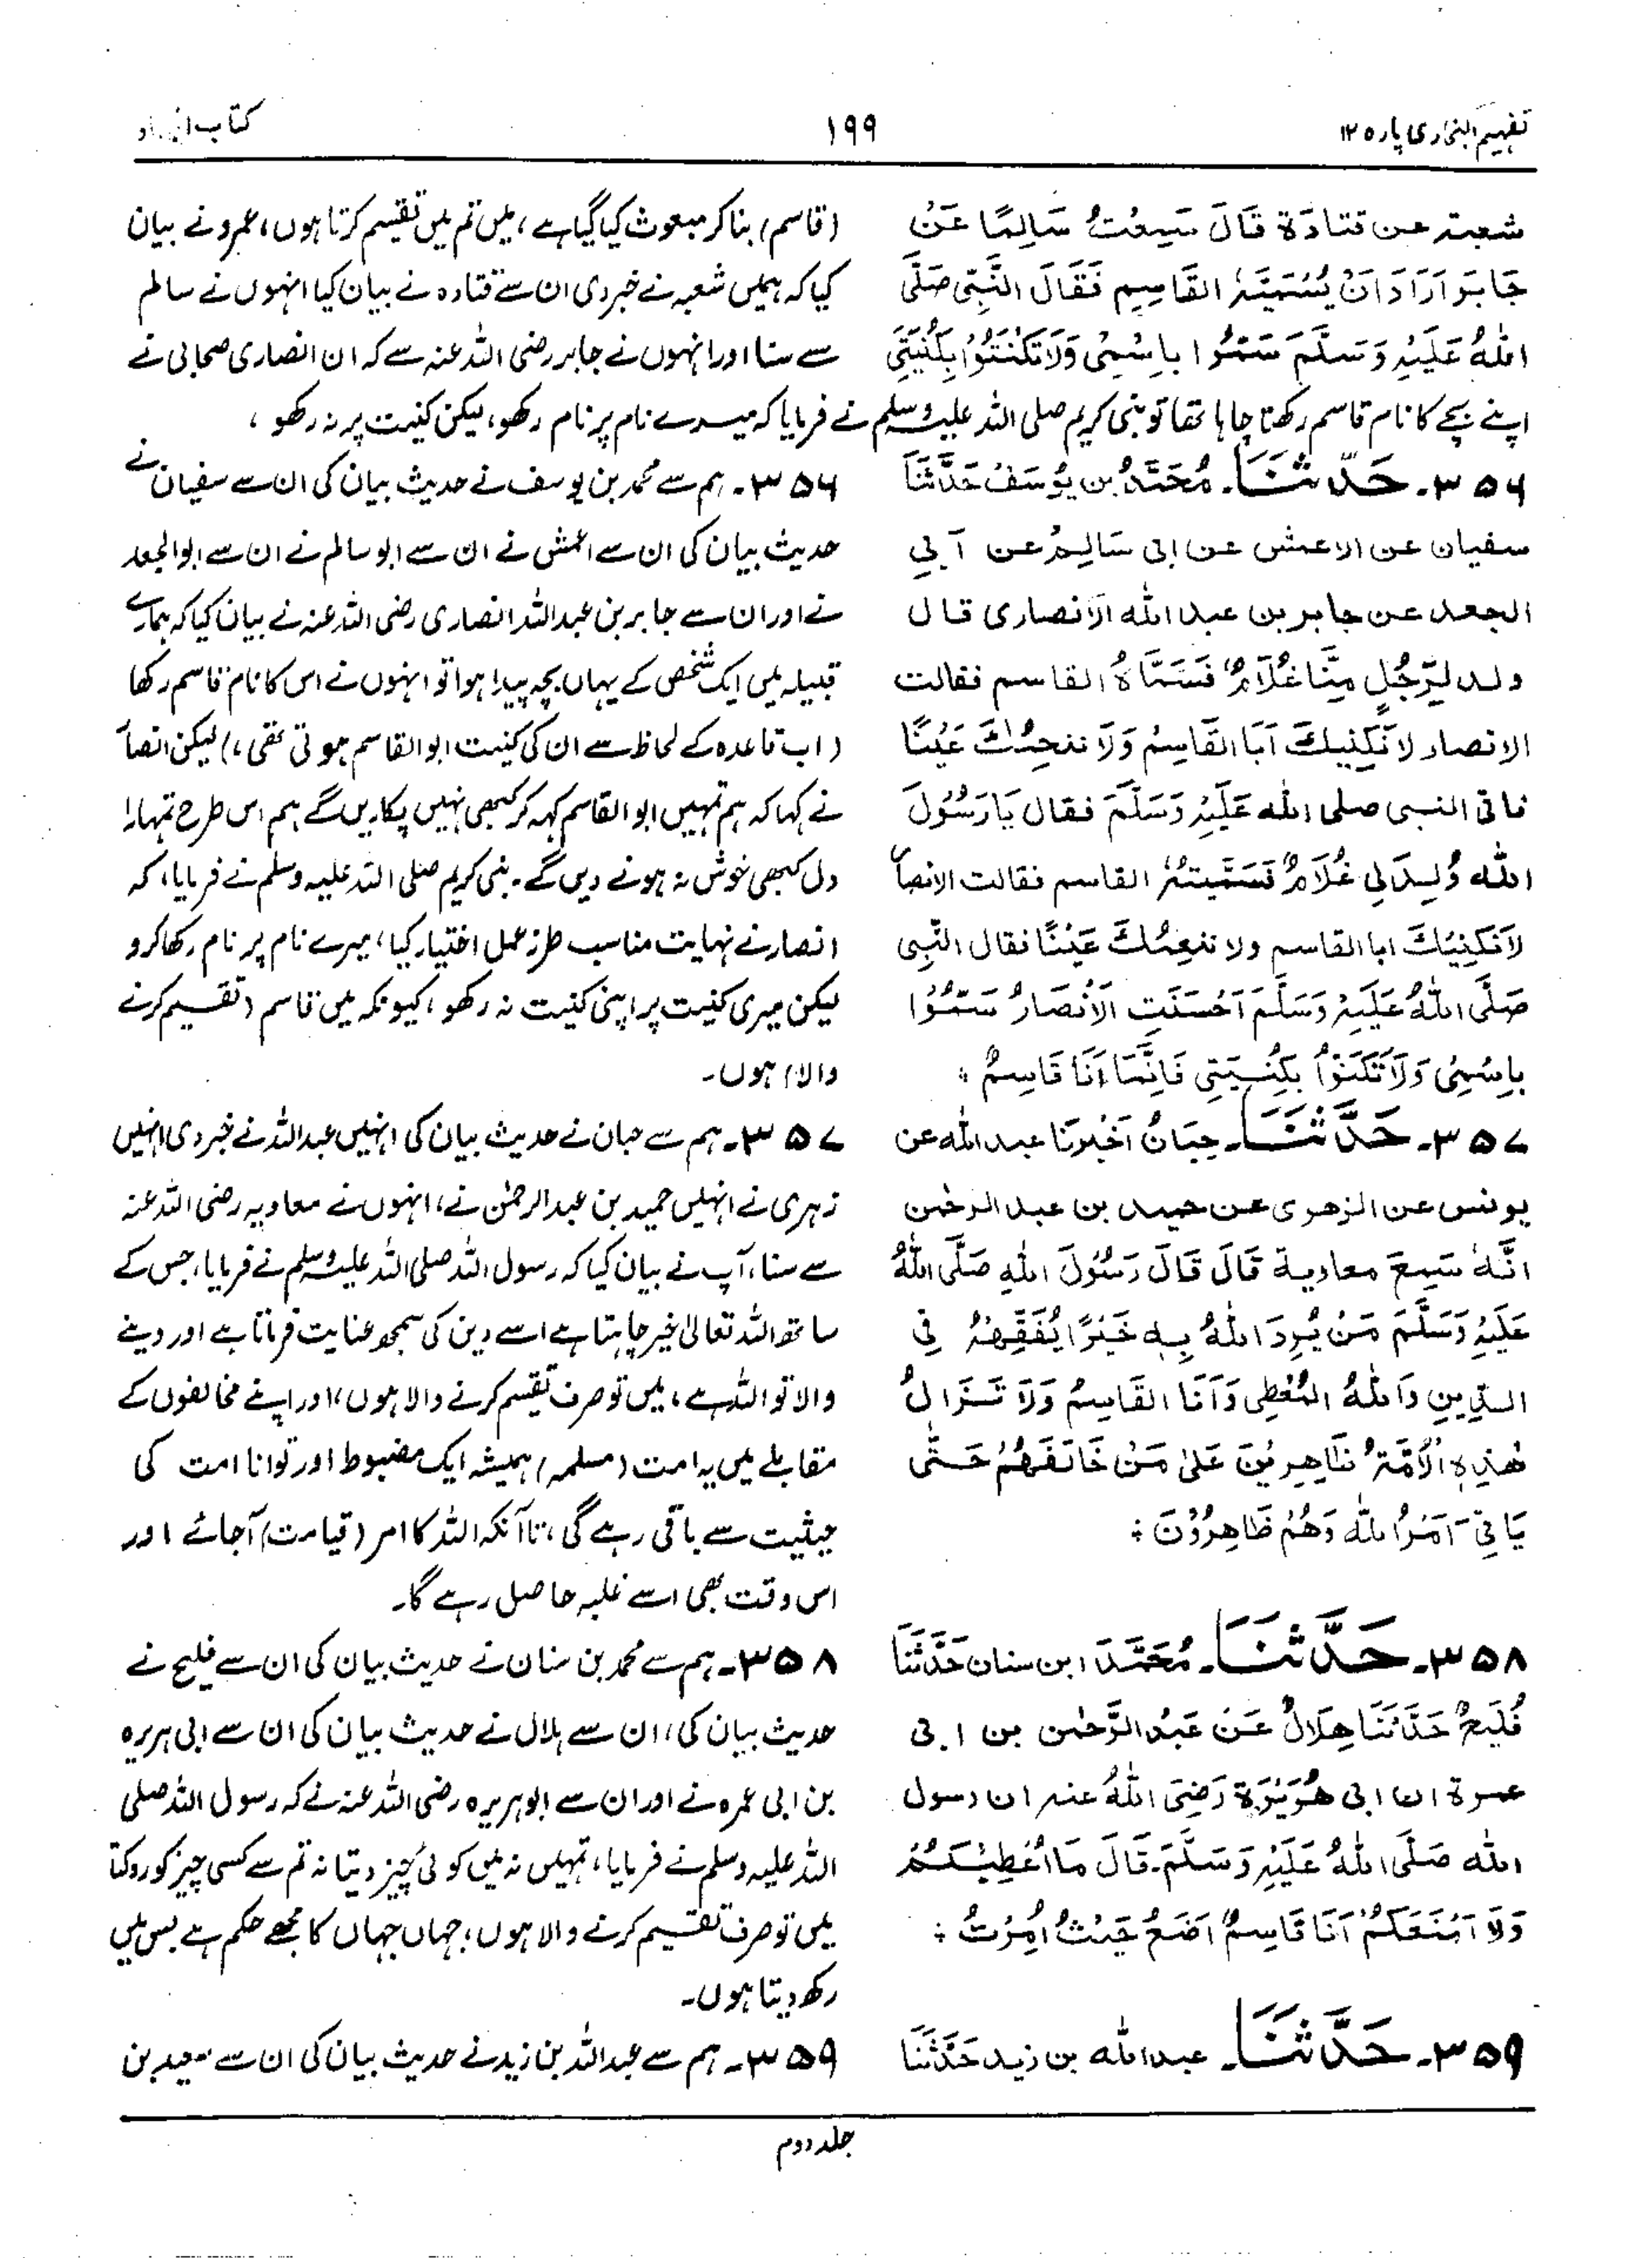 تفہیم البخاری پارہ ۱۲
۱۹۹
کتاب
شعبة عن قتادَة قَالَ سَمِعْتُ سَالِمًا عَنْ
جَابَر اَرَادَ اَنْ يُسَمِّيَهُ القَاسِمِ فَقَالَ النَّبِّى صَلَّى
اللهُ عَلَيْهِ وَسَلَّمَ سَمُّوا بِاسْمِىْ وَلَا تَكْنَتُوْا بِكُنْيَتِيْ
(قاسم) بنا کر مبعوث کیا گیا ہے، میں تم میں تقسیم کرتا ہوں، عمرو نے بیان
کیا کہ ہمیں شعبہ نے خبر دی ان سے قتادہ نے بیان کیا انہوں نے سالم
سے سنا اور انہوں نے جابر رضی اللہ عنہ سے کہ ان انصاری صحابی نے
اپنے بچے کا نام قاسم رکھنا چاہا تھا تو نبی کریم صلی اللہ علیہ وسلم نے فرمایا کہ میرے نام پر نام رکھو، لیکن کنیت پر نہ رکھو،
۳۵۶۔ حَدَّثَنَا۔ مُحَمَّدُ بن يُوسَفُ حَدَّثَنَا
سفيان عن الاعمش عن ابى سَالِمُ عن آبِي
الجعد عن جابر بن عبد الله الانصارى قال
ولد لِرَجُلٍ مِنَّا غُلَامٌ فَسَمَّاهُ القاسم فقالت
الانصار لا نَكْنِيْكَ اَبَا القَاسِمُ وَلَا ننعِمُكَ عَيْنًا
فاتى النبى صلى الله عَلَيْهِ وَسَلَّمَ فقال يَا رَسُوْلَ
الله وُلِدَ لِي غُلَامٌ فَسَمَّيتهُ القاسم فقالت الانصا
لَا نَكْنِيْكَ ابا القاسم ولا ننعِمُكَ عَيْنًا فقال النَّبِى
صَلَّى اللهُ عَلَيْهِ وَسَلَّمَ اَحْسَنَتِ الَانْصَارُ سَمُّوْا
بِاسْمِىْ وَلَا تَكَنَوْا بِكُنْيَتِى فَاِنَّمَا اَنَا قَاسِمٌ ؛
۳۵۶۔ ہم سے محمد بن یوسف نے حدیث بیان کی ان سے سفیان نے
حدیث بیان کی ان سے اعمش نے ان سے ابو سالم نے ان سے ابو الجعد
نے اور ان سے جابر بن عبد اللہ انصاری رضی اللہ عنہ نے بیان کیا کہ ہمارے
قبیلہ میں ایک شخص کے یہاں بچہ پیدا ہوا تو انہوں نے اس کا نام قاسم رکھا
(اب قاعدہ کے لحاظ سے ان کی کنیت ابو القاسم ہوتی تھی،) لیکن انصا
نے کہا کہ ہم تمہیں ابو القاسم کہہ کر کبھی نہیں پکاریں گے ہم اس طرح تمہارا
دل کبھی خوش نہ ہونے دیں گے۔ نبی کریم صلی اللہ علیہ وسلم نے فرمایا، کہ
انصار نے نہایت مناسب طرز عمل اختیار کیا، میرے نام پر نام رکھا کرو
لیکن میری کنیت پر اپنی کنیت نہ رکھو، کیونکہ میں قاسم (تقسیم کرنے
والا) ہوں۔
۳۵۷۔ حَدَّثَنَا۔ حِبَانُ اَخْبَرَنَا عبد الله عن
يونس عن الزهرى عن حميد بن عبد الرحمٰن
اَنَّهُ سَمِعَ معاوية قَالَ قَالَ رَسُوْلَ اللهِ صَلَّى اللهُ
عَلَيْهِ وَسَلَّمَ مَنْ يُرِدَ اللهُ بِهٖ خَيْرًا يُفَقِّهْهُ فِي
الدِّيْنِ وَاللهُ المُعْطِى وَاَنَا القَاسِمُ وَلَا تَزَالُ
هٰذِهِ الْاُمَّةُ ظَاهِرِيْنَ عَلىٰ مَنْ خَالَفَهُمْ حَتّٰى
يَاتِىَ اَمْرُ اللهِ وَهُمْ ظَاهِرُوْنَ ؛
۳۵۷۔ ہم سے حبان نے حدیث بیان کی انہیں عبد اللہ نے خبر دی انہیں
زہری نے انہیں حمید بن عبد الرحمٰن نے، انہوں نے معاویہ رضی اللہ عنہ
سے سنا، آپ نے بیان کیا کہ رسول اللہ صلی اللہ علیہ وسلم نے فرمایا، جس کے
ساتھ اللہ تعالیٰ خیر چاہتا ہے اسے دین کی سمجھ عنایت فرماتا ہے اور دینے
والا تو اللہ ہے، میں تو صرف تقسیم کرنے والا ہوں، اور اپنے مخالفوں کے
مقابلے میں یہ امت (مسلمہ) ہمیشہ ایک مضبوط اور توانا امت کی
حیثیت سے باقی رہے گی، تا آنکہ اللہ کا امر (قیامت) آجائے اور
اس وقت بھی اسے غلبہ حاصل رہے گا۔
۳۵۸۔ حَدَّثَنَا۔ مُحَمَّدَ ابن سنان حَدَّثَنَا
فُلَيْحٌ حَدَّثَنَا هِلَالٌ عَنْ عَبْدُ الرَّحْمٰن بن ابى
عمرة ان ابى هُرَيْرَة رَضِىَ اللهُ عنه ان رسول
الله صَلَّى اللهُ عَلَيْهِ وَسَلَّمَ۔ قَالَ مَا اُعْطِيْكُمْ
وَلَا اَمْنَعَكُمْ اَنَا قَاسِمٌ اَضَعُ حَيْثُ اُمِرْتُ ؛
۳۵۸۔ ہم سے محمد بن سنان نے حدیث بیان کی ان سے فلیح نے
حدیث بیان کی، ان سے ہلال نے حدیث بیان کی ان سے ابی ہریرہ
بن ابی عمرہ نے اور ان سے ابو ہریرہ رضی اللہ عنہ نے کہ رسول اللہ صلی
اللہ علیہ وسلم نے فرمایا، تمہیں نہ میں کوئی چیز دیتا نہ تم سے کسی چیز کو روکتا
میں تو صرف تقسیم کرنے والا ہوں، جہاں جہاں کا مجھے حکم ہے بس میں
رکھ دیتا ہوں۔
۳۵۹۔ حَدَّثَنَا۔ عبد الله بن زيد حَدَّثَنَا
۳۵۹۔ ہم سے عبد اللہ بن زید نے حدیث بیان کی ان سے سعید بن
جلد دوم